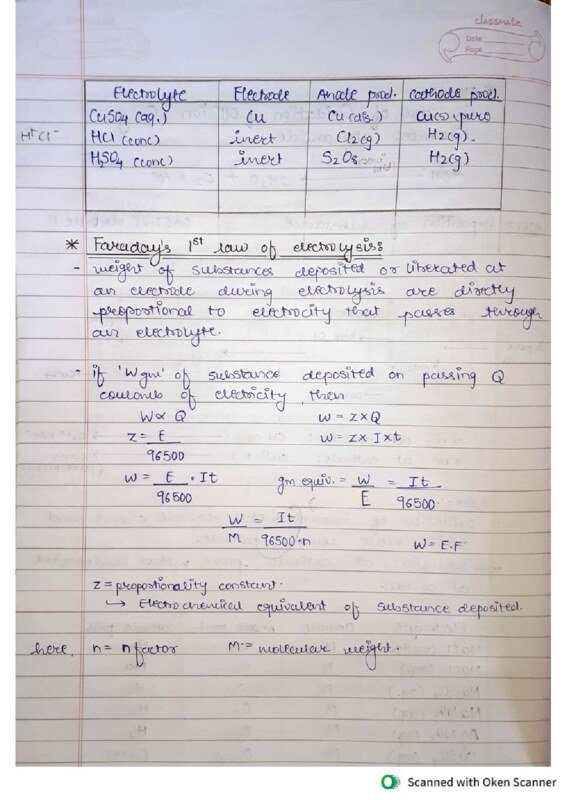 classmate
Date
Page
Electrolyte Electrode Anode prod. Cathode prod.
CuSO4 (aq.) Cu Cu(dis.) Cu(s) pure
H+Cl- HCl (conc) inert Cl2(g) H2(g).
H2SO4 (conc) inert S2O8 H2(g)
* Faraday's 1st law of electrolysis:
- weight of substances deposited or liberated at
an electrode during electrolysis are directly
proportional to electrocity that passes through
an electrolyte.
- if 'W gm' of substance deposited on passing Q
coulomb of eletricity, then
W ∝ Q w = z×Q
z = E/96500 w = z× I×t
w = E/96500 . It gm equiv. = W/E = It/96500.
W/M = It/96500.n W = E.F
z = proportionality constant.
↳ Electrochemical equivalent of substance deposited.
here, n = n factor M = molecular weight.
Scanned with Oken Scanner